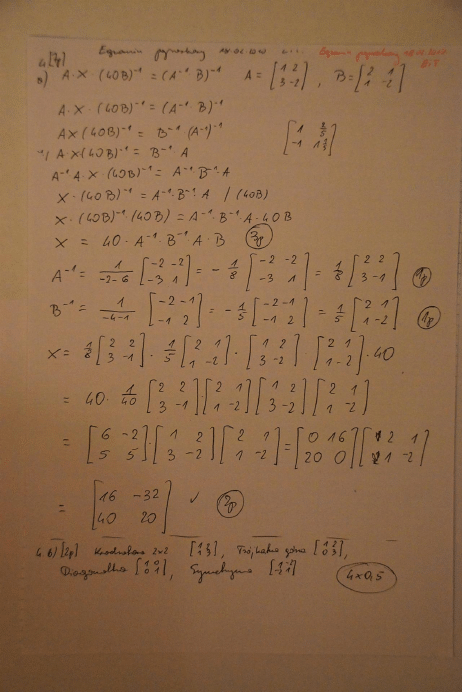 4[7p] Egzamin poprawkowy Egzamin poprawkowy
a) A·X·(40B)⁻¹ = (A⁻¹ B)⁻¹ A = [1 2; 3 -2], B = [2 1; 1 -2]
A·X·(40B)⁻¹ = (A⁻¹·B)⁻¹
AX(40B)⁻¹ = B⁻¹·(A⁻¹)⁻¹
A·X(40B)⁻¹ = B⁻¹·A
A⁻¹A·X·(40B)⁻¹ = A⁻¹·B⁻¹·A
X·(40B)⁻¹ = A⁻¹·B⁻¹·A / (40B)
X·(40B)⁻¹·(40B) = A⁻¹·B⁻¹·A·40B
X = 40·A⁻¹·B⁻¹·A·B 3p
A⁻¹ = 1/(-2-6) [-2 -2; -3 1] = -1/8 [-2 -2; -3 1] = 1/8 [2 2; 3 -1] 1p
B⁻¹ = 1/(-4-1) [-2 -1; -1 2] = -1/5 [-2 -1; -1 2] = 1/5 [2 1; 1 -2] 1p
X = 1/8 [2 2; 3 -1] · 1/5 [2 1; 1 -2] · [1 2; 3 -2] [2 1; 1 -2] · 40
= 40 · 1/40 [2 2; 3 -1]·[2 1; 1 -2] [1 2; 3 -2] [2 1; 1 -2]
= [6 -2; 5 5]·[1 2; 3 -2] [2 1; 1 -2] = [0 16; 20 0] [2 1; 1 -2]
= [16 -32; 40 20] ✓ 2p
4 b) [2p] Kwadratowa 2x2, Trójkątna górna [1 2; 0 3],
Diagonalna [1 0; 0 1], Symetryczna 4x0,5